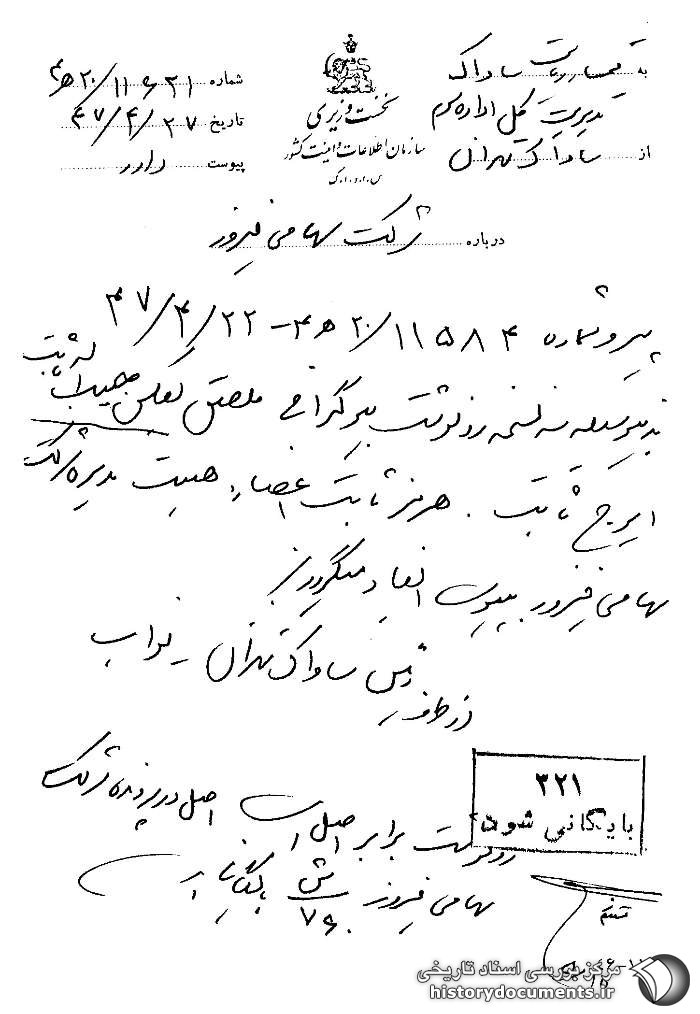 به تیمسار ریاست ساواک
مدیریت کل اداره سوم
از ساواک تهران
نخست وزیری
سازمان اطلاعات و امنیت کشور
س.ا.و.ا.ک
شماره ۲۰/۱۱۶۲۱ ه‍ ۴
تاریخ ۴۷/۴/۲۷
پیوست دارد
درباره شرکت سهامی فیروز
پیرو شماره ۲۰/۱۱۵۸۴ ه‍ ۴-۴۷/۴/۲۲
بدینوسیله سه نسخه رونوشت بیوگرافی ملصق بعکس حبیب اله ثابت
ایرج ثابت . هرمز ثابت اعضاء هیئت مدیره شرکت
سهامی فیروز بپیوست ایفاد میگردد
رئیس ساواک تهران نواب
از طرف
۳۲۱
بایگانی شود
رونوشت برابر اصل است اصل در پرونده شرکت
سهامی فیروز ش بایگانی است
۷۶۰
مرکز بررسی اسناد تاریخی
historydocuments.ir